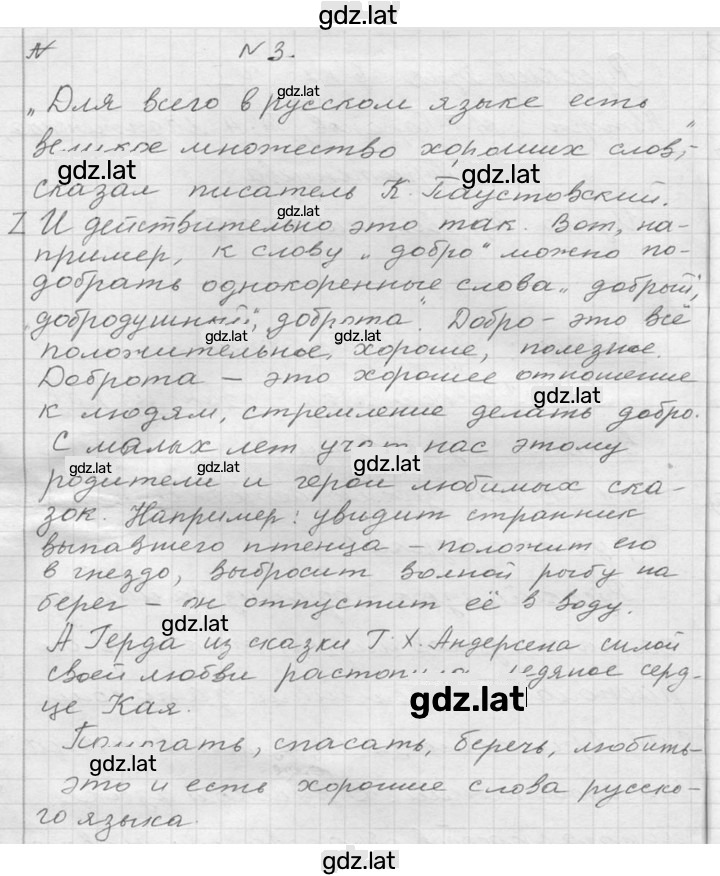 gdz.lat
N N 3.
gdz.lat
„Для всего в русском языке есть
великое множество хороших слов",-
gdz.lat
сказал писатель К. Паустовский.
gdz.lat
Z И действительно это так. Вот, на-
пример, к слову „добро" можно по-
добрать однокоренные слова „добрый",
добродушный", доброта". Добро - это всё
gdz.lat gdz.lat
положительное, хорошее, полезное.
Доброта - это хорошее отношение
gdz.lat
к людям, стремление делать добро.
С малых лет учат нас этому
gdz.lat gdz.lat gdz.lat
родители и герои любимых ска-
зок. Например: увидит странник
выпавшего птенца - положит его
в гнездо, выбросит волной рыбу на
берег - он отпустит её в воду.
gdz.lat
А Герда из сказки Г. Х. Андерсена силой
своей любви растопила ледяное серд-
gdz.lat
це Кая.
Помогать, спасать, беречь, любить-
gdz.lat
это и есть хорошие слова русско-
го языка.
gdz.lat